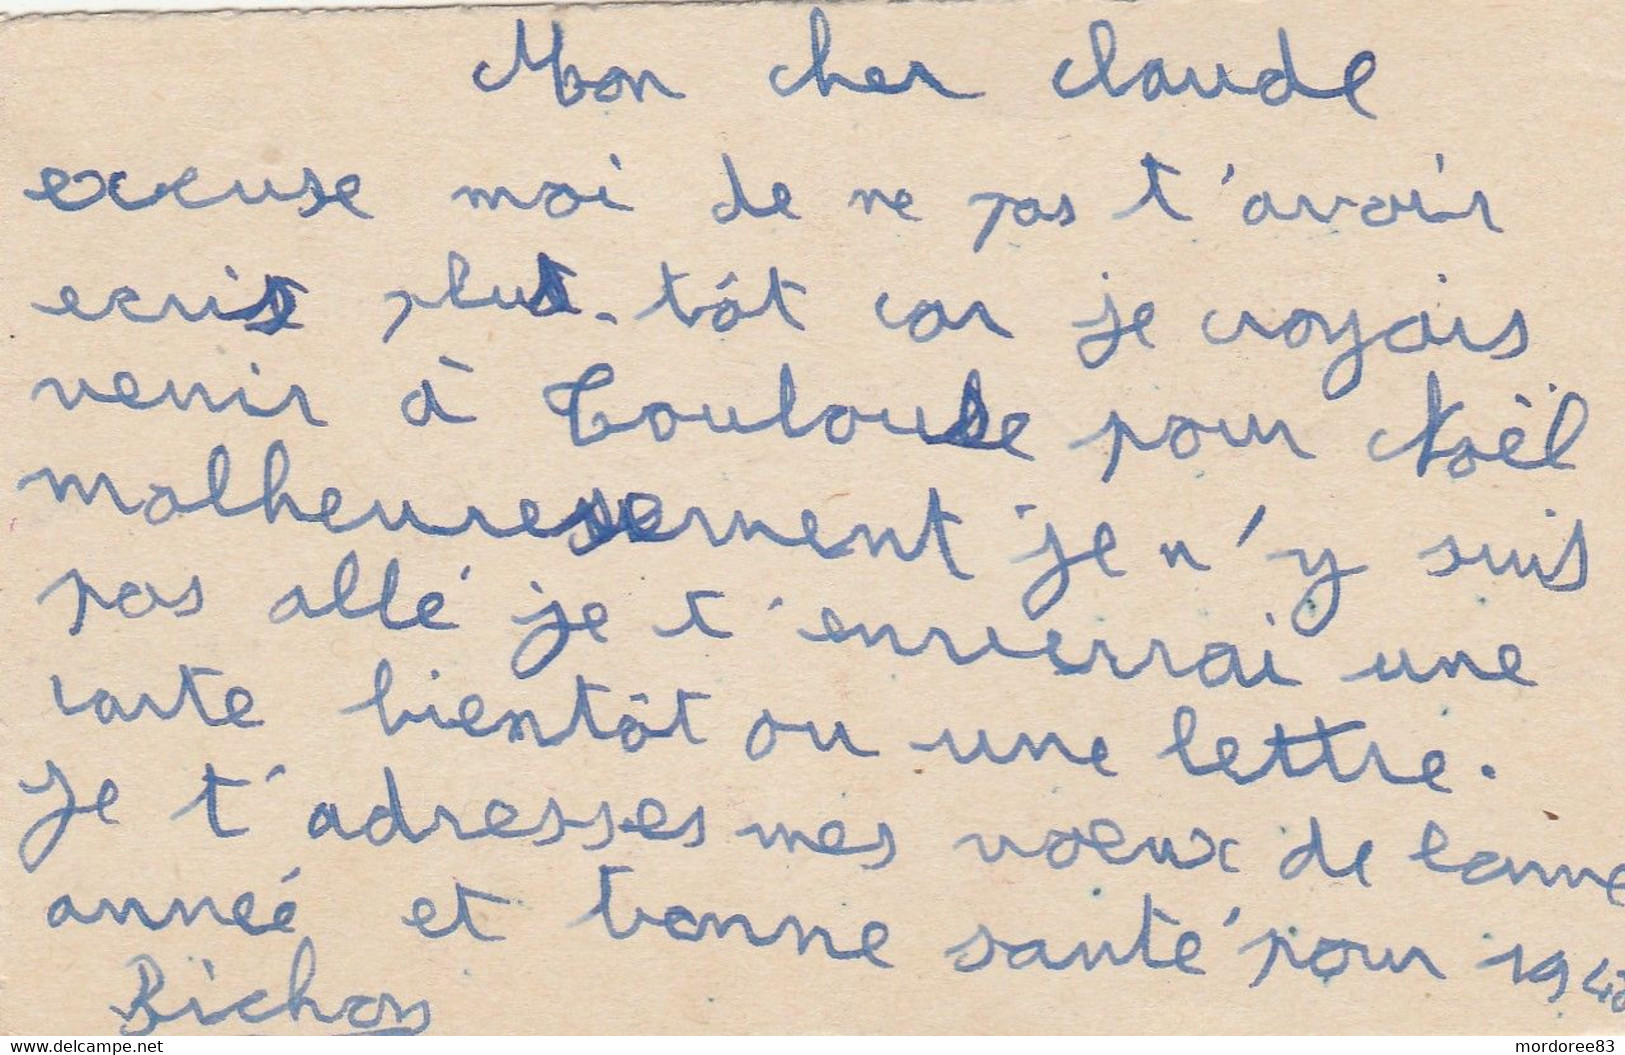 Mon cher claude
excuse moi de ne pas t'avoir
ecris plus-tôt car je croyais
venir à Toulouse pour Noël
malheuresement je n'y suis
pas allé je t'enverrai une
carte bientôt ou une lettre.
Je t'adresses mes voeux de bonne
année et bonne santé pour
Bichon
www.delcampe.net
mordoree83